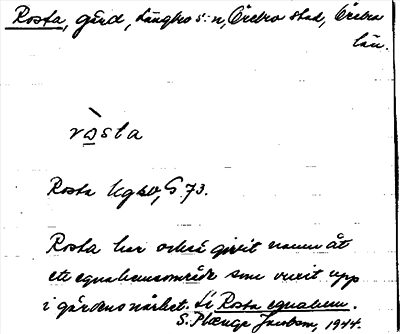 Rosta, gård, Längbro s:n, Örebro stad, Örebro
län.
ròsta
Rosta Ugbl, S. 73.
Rosta har också givit namn åt
ett egnahemsområde som vuxit upp
i gårdens närhet. Se Rosta egnahem.
S. Plænge Jacobson, 1944.